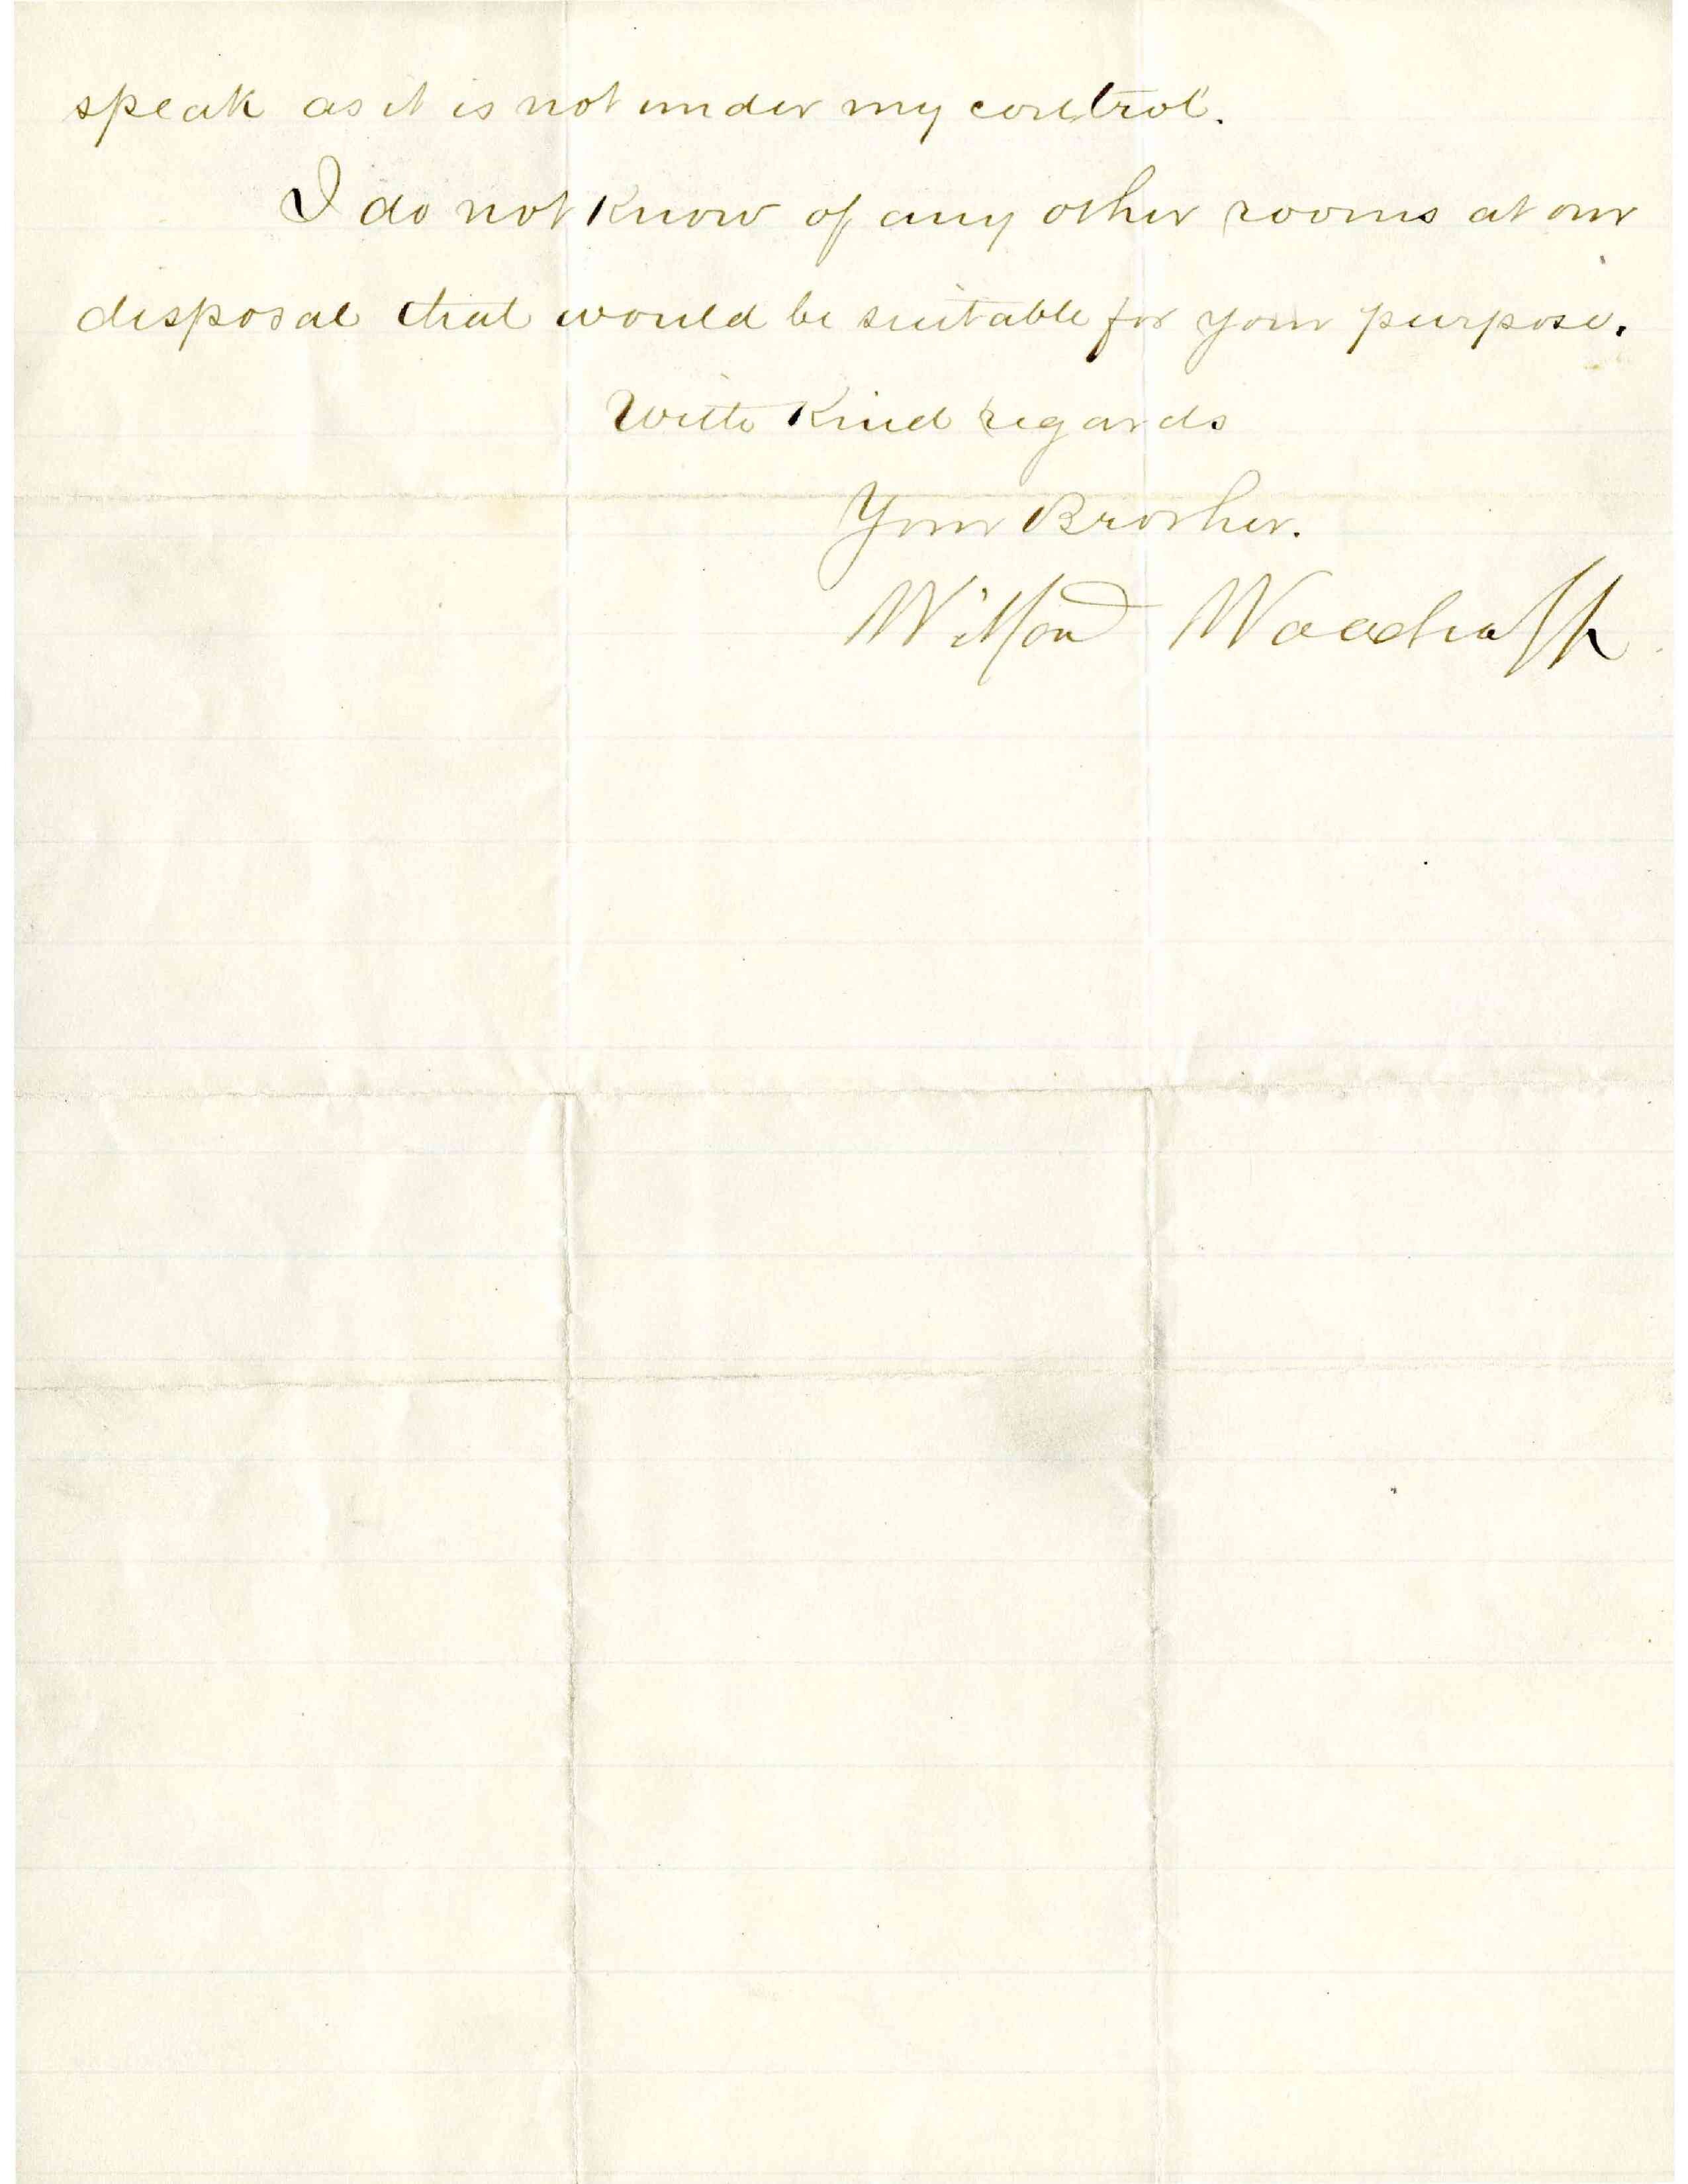 speak as it is not under my control.
I do not know of any other rooms at our
disposal that would be suitable for your purpose.
With Kind regards
Your Brother.
Wilford Woodruff